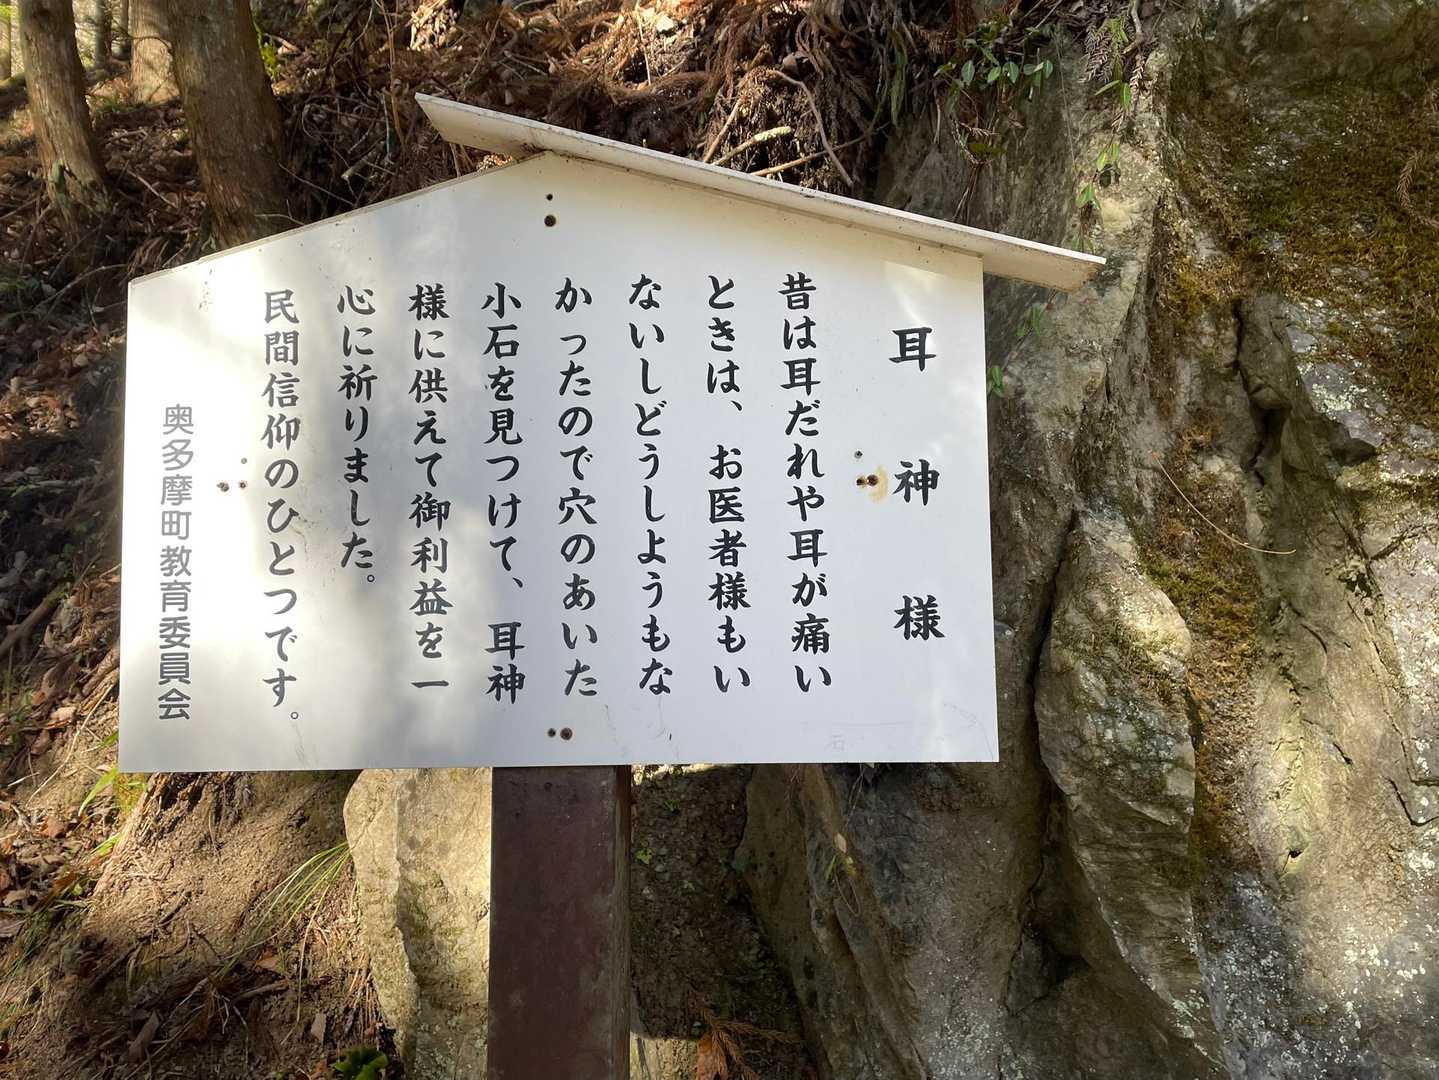 耳神様
昔は耳だれや耳が痛い
ときは、お医者様もい
ないしどうしようもな
かったので穴のあいた
小石を見つけて、耳神
様に供えて御利益を一
心に祈りました。
民間信仰のひとつです。
奥多摩町教育委員会